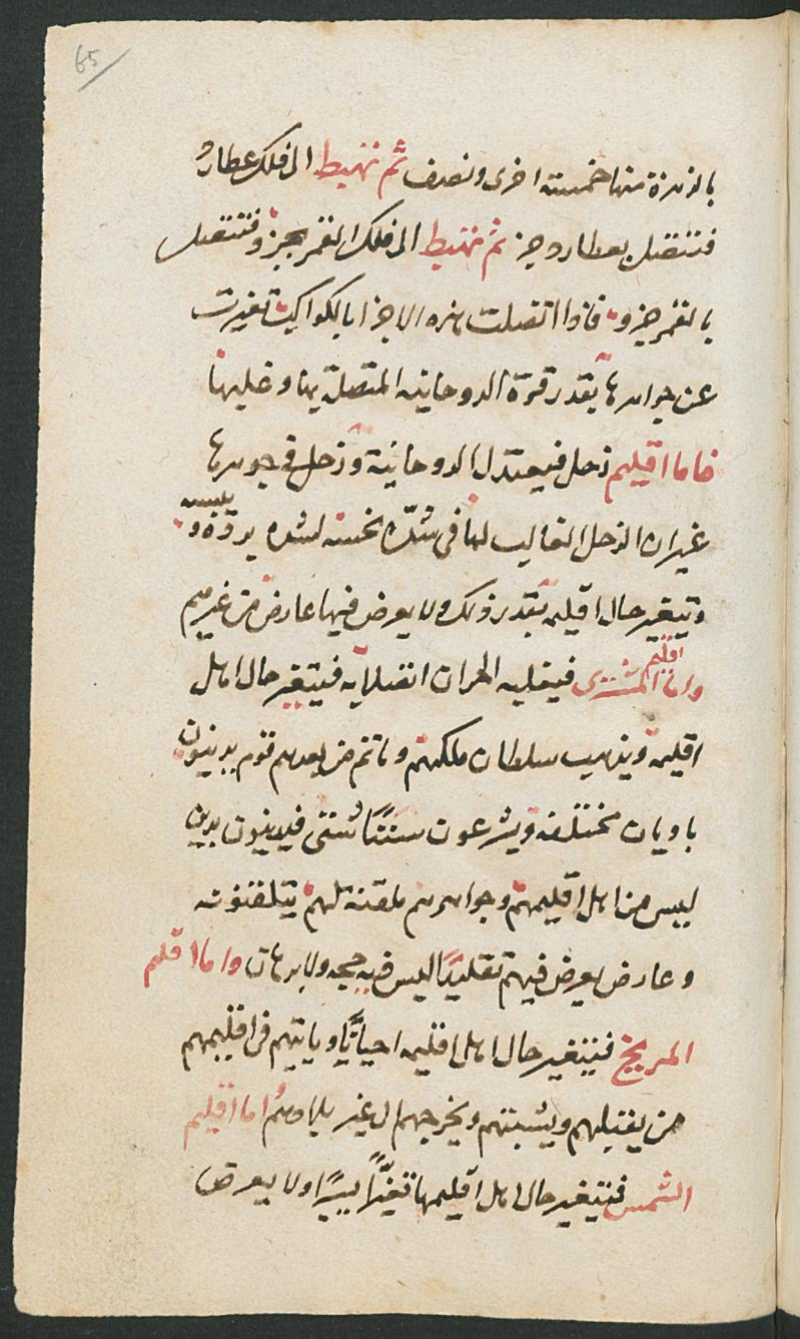 65
بالزهرة منها خمسة اخرى ونصف ثم تهبط الى فلك عطارد
فتتصل بعطارد جز ثم تهبط الى فلك القمر بجزو فتتصل
بالقمر جزو فاذا اتصلت هذه الاجزا بالكواكب تغيرت
عن جواهرها بقدر قوة الروحانيه المتصلة بها وعليها
فاما اقليم زحل فيعتدل الروحانية وزحل في جوهرها
غير ان الزحل الغالب لها في شدّة نحسه لشده برده ويبسه
وتتغير حال اقليمه بقدر ذلك ولا يعرض فيها عارض من غيرهم
واما اقليم المشترى فيغلبه انتصلابه فيتغير حال اهل
اقليمه ويذهب سلطان ملكهم وياتى من بعدهم قوم يدينون
باديان مختلفه ويشرعون سننًا شتى فيدينون بدين
ليس من اهل اقليمهم وجواهرهم ملقنة لهم يتلقنونه
وعارض يعرض فيهم تقليدًا ليس فيه حجه ولا برهان واما اقليم
المريخ فيتغير حال اهل اقليمه احيانًا وياتيهم فى اقليمهم
من يقتلهم ويشتتهم ويخرجهم الى غير بلادهم واما اقليم
الشمس فتتغير حال اهل اقليمها تغيّرًا يسيرًا ولا يعرض